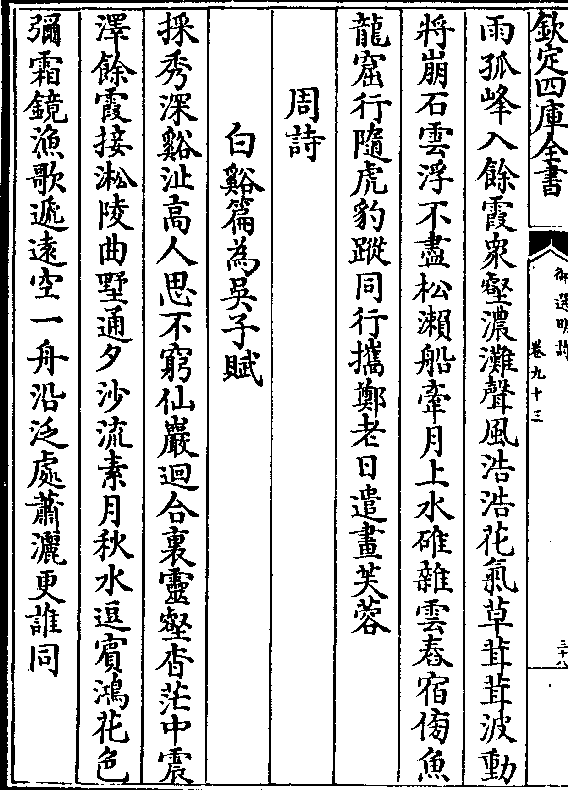 欽定四庫全書
御選明詩
卷九十三
三十八
雨孤峰入餘霞衆壑濃灘聲風浩浩花氣草茸茸波動
將崩石雲浮不盡松瀨船牽月上水碓雜雲舂宿傍魚
龍窟行隨虎豹蹤同行攜鄭老日遣畫芙蓉
周詩
白谿篇為吳子賦
採秀深谿沚高人思不窮仙巖迴合裏靈壑杳茫中震
澤餘霞接淞陵曲墅通夕沙流素月秋水逗賓鴻花色
彌霜鏡漁歌遞遠空一舟沿泛處蕭灑更誰同